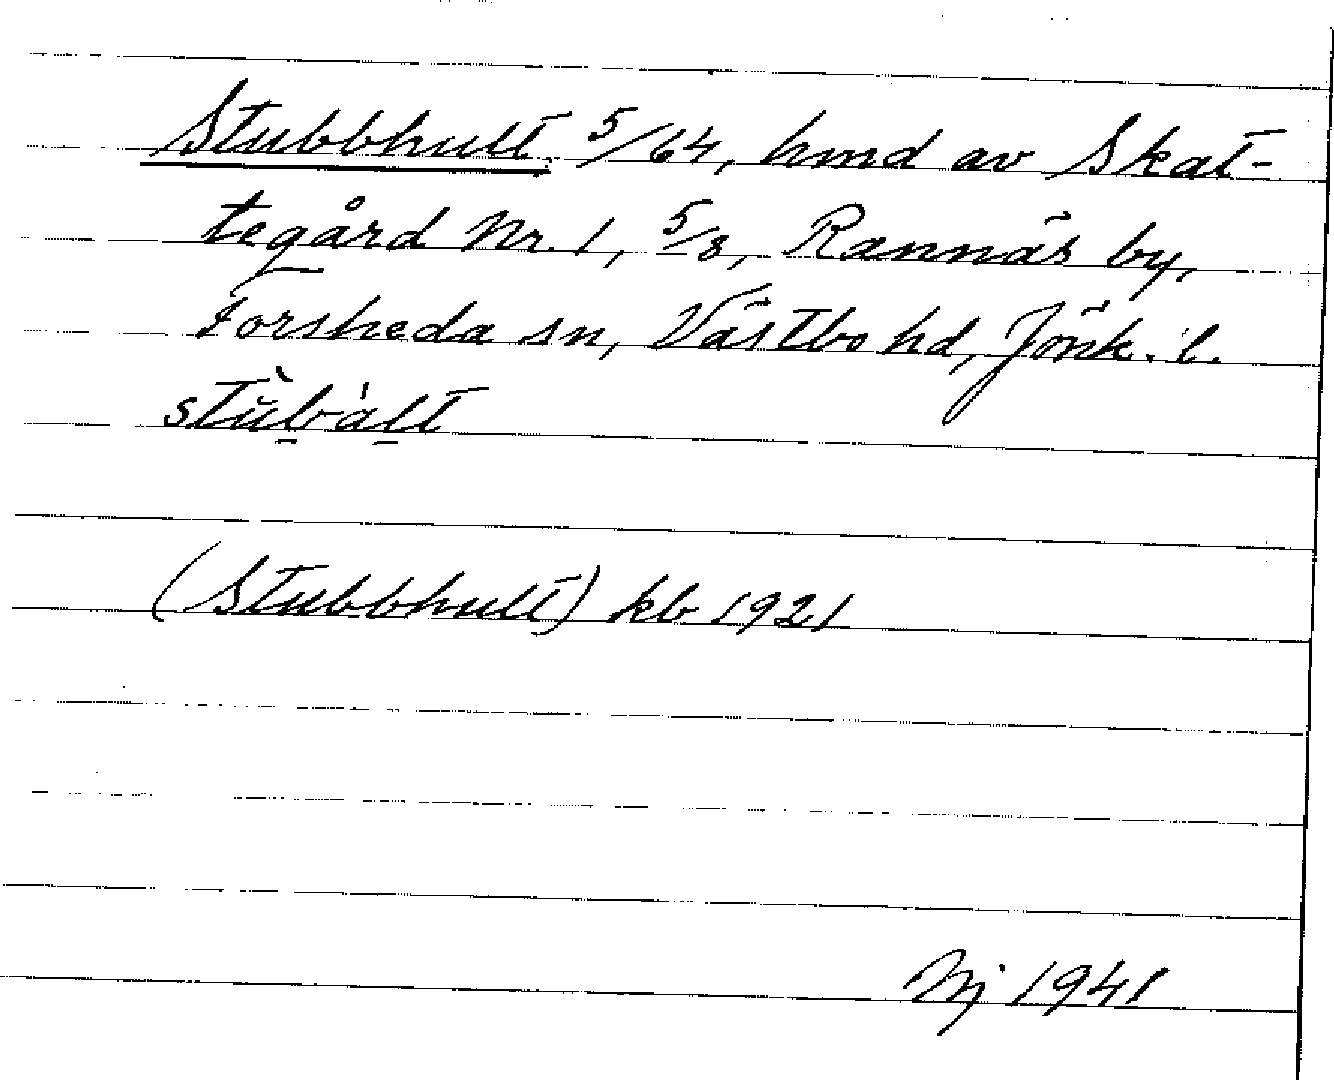 Stubbhult 5/64, hmd av Skat-
tegård Nr. 1, 5/8, Rannäs by,
Forsheda sn, Västbo hd, Jönk. l.
(Stubbhult) kb 1921
Nj 1941